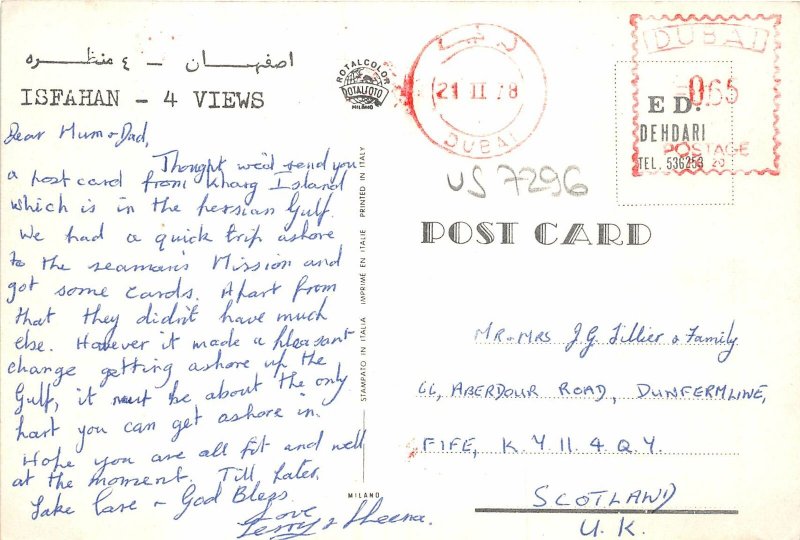 اصفهان - ٤ منظره
ISFAHAN - 4 VIEWS
Dear Mum & Dad,
Thought we'd send you
a post card from Kharg Island
which is in the Persian Gulf.
We had a quick trip ashore
to the seaman's Mission and
got some cards. Apart from
that they didn't have much
else. However it made a pleasant
change getting ashore up the
Gulf, it must be about the only
part you can get ashore in.
Hope you are all fit and well
at the moment. Till Later,
Take Care & God Bless.
Love
Terry & Sheena.
ROTALCOLOR
ROTALFOTO
MILANO
STAMPATO IN ITALIA IMPRIMÉ EN ITALIE PRINTED IN ITALY
MILANO
دبي
21 II 78
DUBAI
DUBAI
065
POSTAGE
ED.
DEHDARI
TEL. 536253
US 7296
POST CARD
MR & MRS J.G. Tillier & Family
66, ABERDOUR ROAD, DUNFERMLINE,
FIFE, KY11 4QY.
SCOTLAND
U.K.